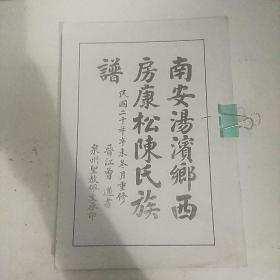 南安湯濱鄉西
房康松陳氏族
譜
民國二十年辛未冬月重修
晉江曾遒書
泉州聖教偉文承印